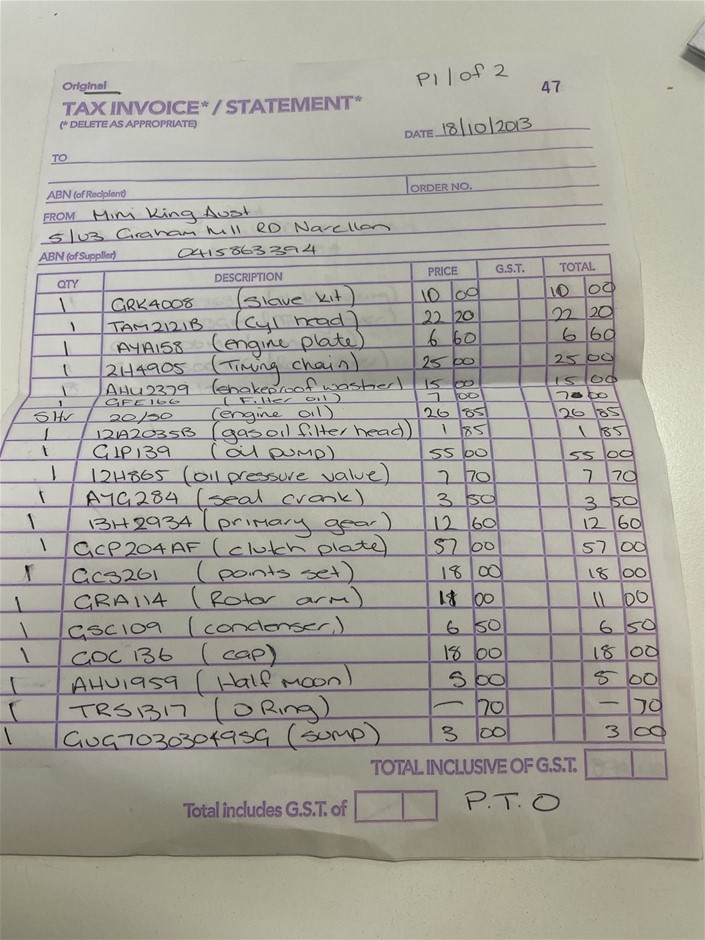 P1/of 2
Original
47
TAX INVOICE* / STATEMENT*
(* DELETE AS APPROPRIATE)
DATE 18/10/2013
TO
ABN (of Recipient) ORDER NO.
FROM Mini King Aust
5/103 Graham Hill RD Narellan
ABN (of Supplier) 0415863394
QTY DESCRIPTION PRICE G.S.T. TOTAL
1 GRK4008 (slave kit) 10 00 10 00
1 TAM2121B (cyl head) 22 20 22 20
1 AYA158 (engine plate) 6 60 6 60
1 2H4905 (Timing chain) 25 00 25 00
1 AHU2379 (shakeproof washer) 15 00 15 00
1 GFE166 (Filter oil) 7 00 7 00
5ltr 20/50 (engine oil) 26 85 26 85
1 12A2035B (gasoil filter head) 1 85 1 85
1 G1P139 (oil pump) 55 00 55 00
1 12H865 (oil pressure valve) 7 70 7 70
1 AYG284 (seal crank) 3 50 3 50
1 13H2934 (primary gear) 12 60 12 60
1 GCP204AF (clutch plate) 57 00 57 00
1 GCS261 (points set) 18 00 18 00
1 GRA114 (Rotor arm) 11 00 11 00
1 GSC109 (condenser) 6 50 6 50
1 GDC136 (cap) 18 00 18 00
1 AHU1959 (Half Moon) 5 00 5 00
1 TRS1317 (O Ring) — 70 — 70
1 GUG703030495G (sump) 3 00 3 00
TOTAL INCLUSIVE OF G.S.T.
Total includes G.S.T. of P.T.O